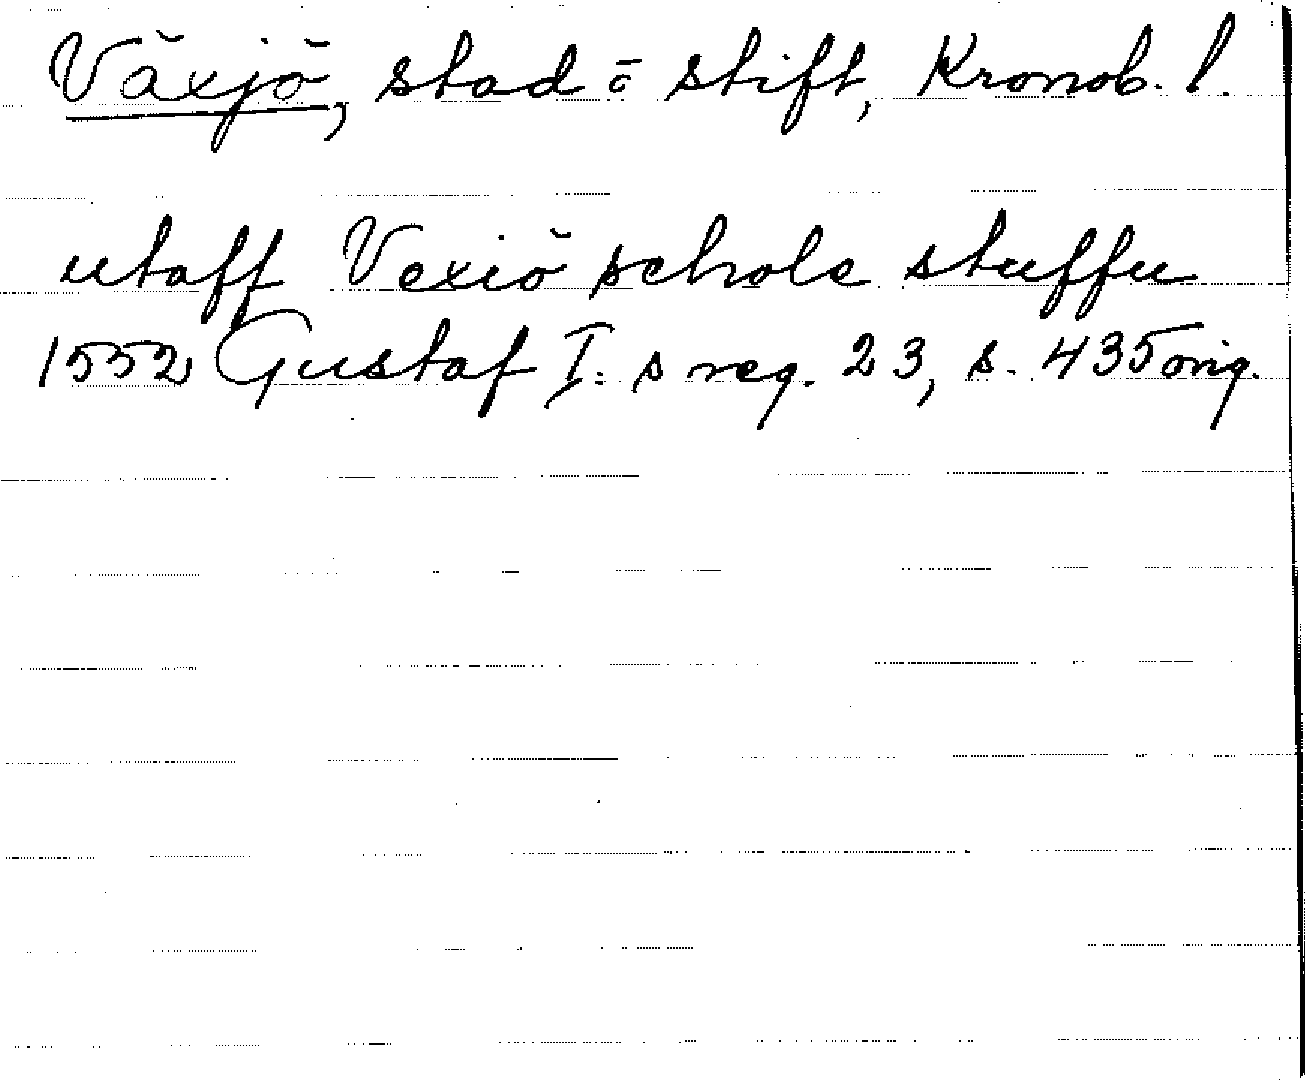 Växjö, stad o stift, Kronob. l.
utaff Vexiö schole stuffu
1552 Gustaf I:s reg. 23, s. 435 orig.